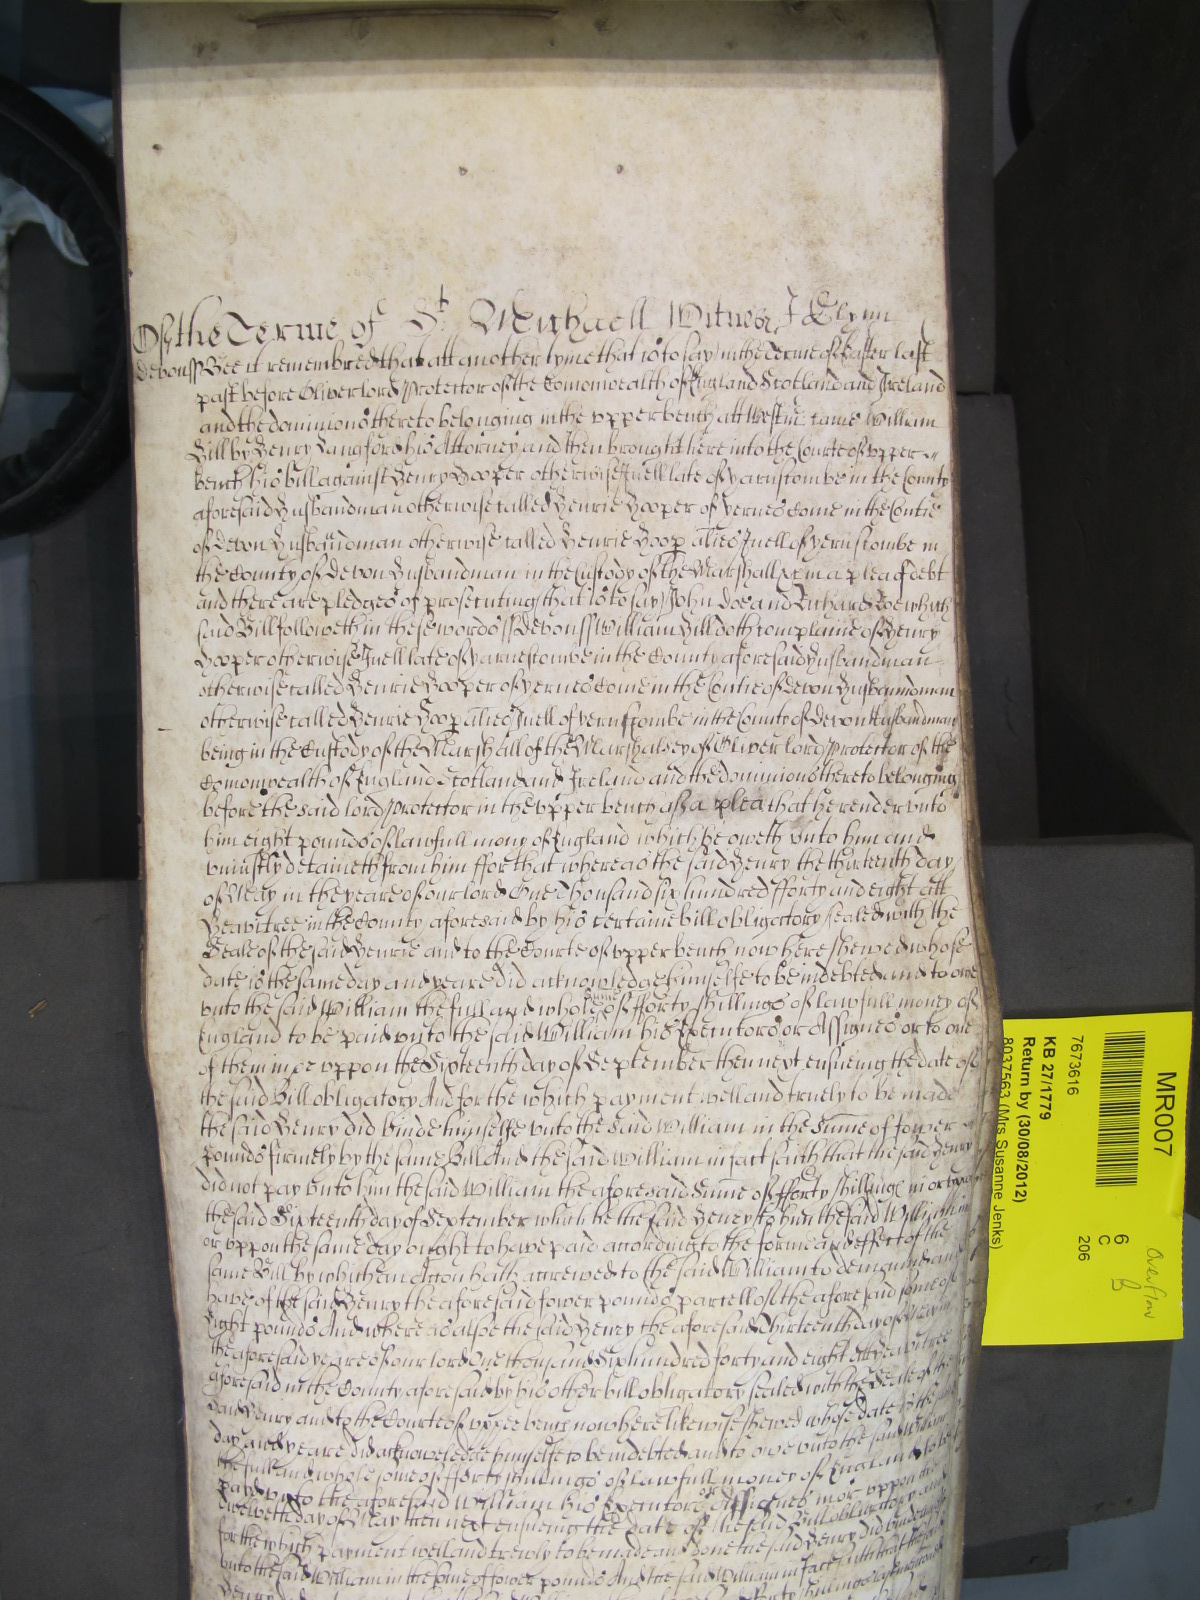 Of the Terme of St Michaell Witnes J Glynn
Devonss Bee it remembred that att another tyme that is to say in the Terme of Easter last
past before Oliver lord Protector of the Comonwealth of England Scotland and Ireland
and the dominions thereto belonging in the upper bench att Westm came William
Hill by Henry Langford his Attorney and then brought here into the Courte of upper
bench his bill against Henry Hooper otherwise Juell late of Yarnscombe in the County
aforesaid husbandman otherwise called Henrie Hooper of Yernescome in the Contie
of Devon husbandman otherwise called Henrie Hoop alies Juell of Yernscombe in
the County of Devon husbandman in the Custody of the Marshall &c in a plea of debt
and there are pledges of prosecuting that is to say John Doe and Richard Roe which
said Bill followeth in these words ss Devonss William Hill doth complaine of Henry
Hooper otherwise Juell late of Yarnescombe in the County aforesaid husbandman
otherwise called Henrie Hooper of Yernescome in the Contie of Devon husbandman
otherwise called Henrie Hoop alies Juell of Yernscombe in the County of Devon husbandman
being in the Custody of the Marshall of the Marshalsey of Oliver lord Protector of the
Comonwealth of England Scotland and Ireland and the dominions thereto belonging
before the said lord Protector in the upper bench of a plea that he render unto
him eight pounds of lawfull mony of England which he oweth unto him and
uniustly detaineth from him ffor that whereas the said Henry the thirteenth day
of May in the yeare of our lord One Thousand six hundred fforty and eight att
Heavitree in the County aforesaid by his certaine bill obligatory sealed with the
Seale of the said Henrie and to the Courte of upper bench now here shewed whose
date is the same day and yeare did acknowledge himselfe to be indebted and to owe
unto the said William the full and whole sume of fforty shillings of lawfull money of
England to be paid unto the said William his Executors or Assignes or to one
of them in or uppon the Sixteenth day of September then next ensueing the date of
the said Bill obligatory And for the which payment well and truely to be made
the said Henry did binde himselfe unto the said William in the Sume of fower
pounds firmely by the same Bill And the said William in fact saith that the said Henry
did not pay unto him the said William the aforesaid Sume of fforty shillings in or uppon
the said Sixteenth day of September which he the said Henry to him the said William in
or uppon the same day ought to have paid according to the forme and effect of the
same Bill by which an Accon hath accrewed to the said William to demaund and
have of the said Henry the aforesaid fower pounds parcell of the aforesaid some of
Eight pounds And whereas alsoe the said Henry the aforesaid Thirteenth day of May in
the aforesaid yeare of our lord One thousand Six hundred forty and eight att Heavitree
aforesaid in the County aforesaid by his other bill obligatory sealed with the Seale of the
said Henry and to the Courte of upper bench now here likewise shewed whose date is the same
day and yeare did acknowledge himselfe to be indebted and to owe unto the said William
the full and whole some of fforty shillings of lawfull money of England to be
paid unto the aforesaid William his Executors or Assignes in or uppon the
twelveth day of May then next ensueing the date of the said Bill obligatory and
for the which payment well and trewly to be made and done the said Henry did binde himselfe
unto the said William in the some of fower pounds And the said William in fact saith that the said
Henry
MR007
7673616
KB 27/1779
Return by (30/08/2012)
8037563 (Mrs Susanne Jenks)
6
C
206
Overflow
B